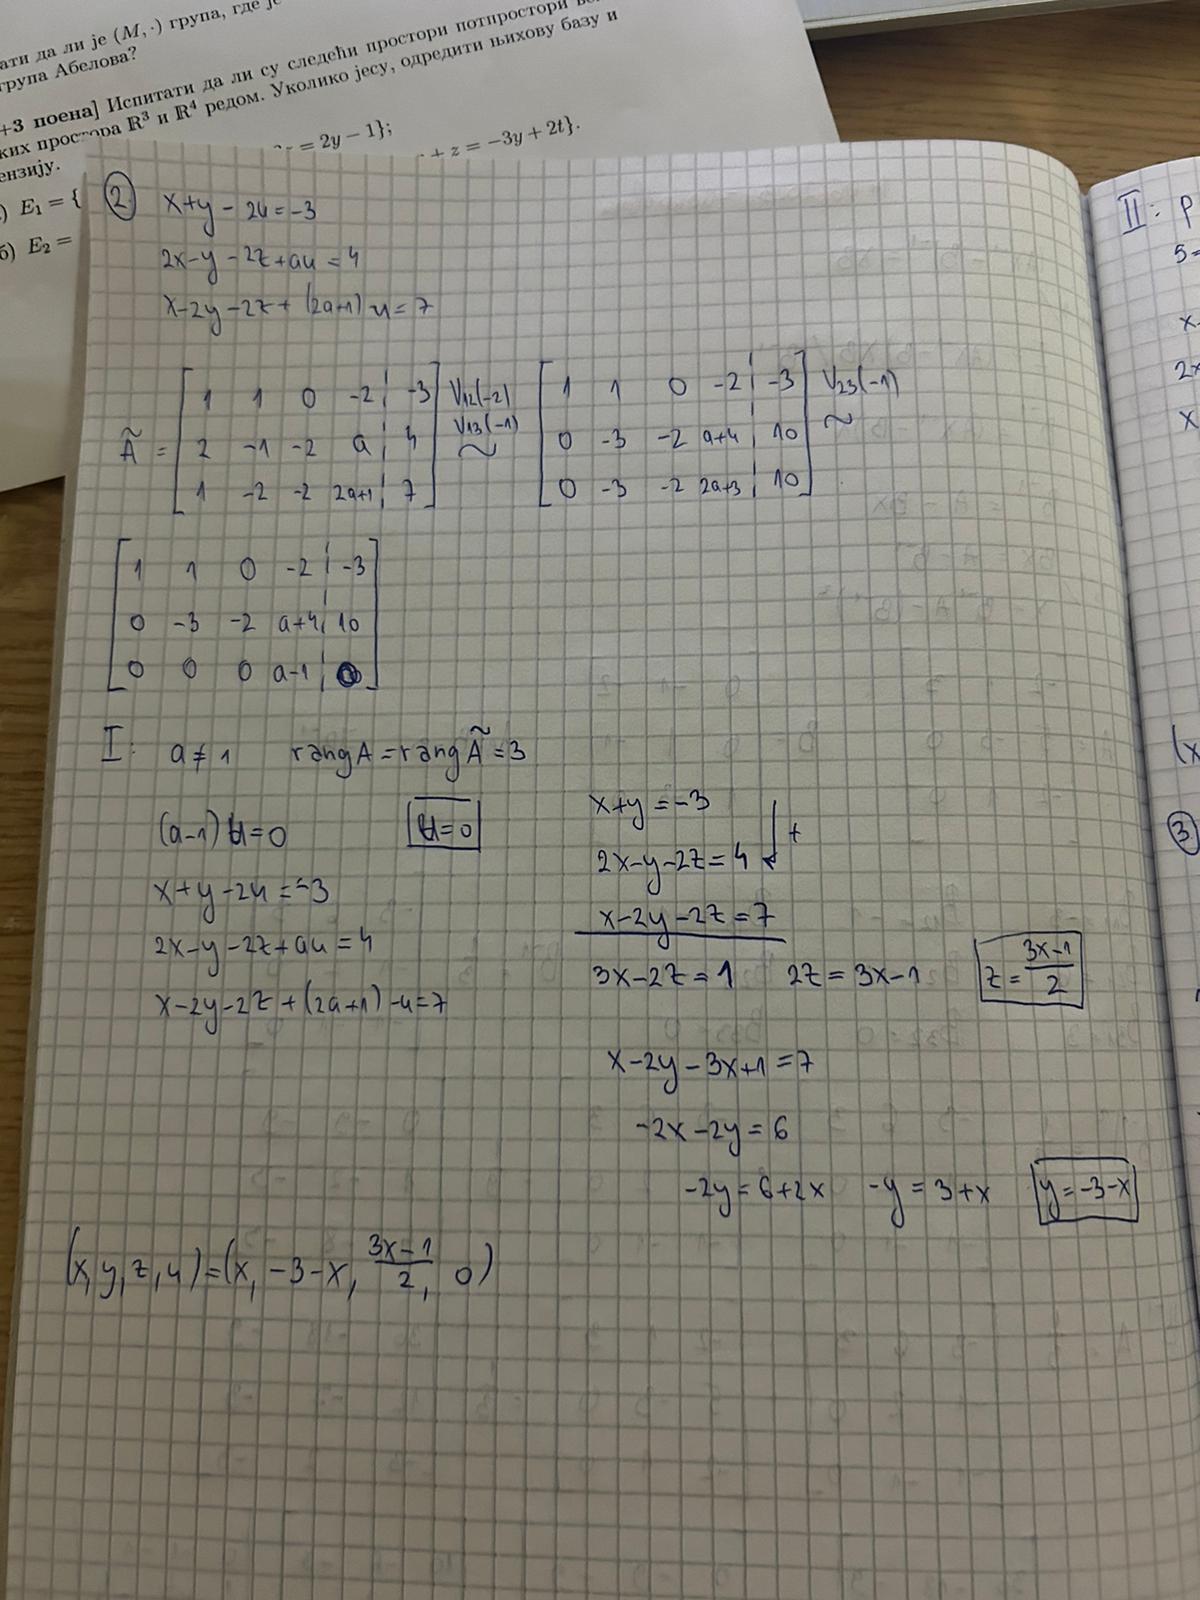 ати да ли је (M, ·) група, где је
група Абелова?
+3 поена] Испитати да ли су следећи простори потпростори
ких простора ℝ³ и ℝ⁴ редом. Уколико јесу, одредити њихову базу и
ензију.
= 2y − 1};
) E₁ = {
+ z = −3y + 2t}.
б) E₂ =
2. x+y-2u=-3
2x-y-2z+au=4
x-2y-2z+(2a+1)u=7
Ã = [ 1 1 0 -2 | -3 ] V12(-2) [ 1 1 0 -2 | -3 ] V23(-1)
[ 2 -1 -2 a | 4 ] V13(-1) ~ [ 0 -3 -2 a+4 | 10 ] ~
[ 1 -2 -2 2a+1 | 7 ] [ 0 -3 -2 2a+3 | 10 ]
[ 1 1 0 -2 | -3 ]
[ 0 -3 -2 a+4 | 10 ]
[ 0 0 0 a-1 | 0 ]
I: a≠1 rang A = rang Ã = 3
(a-1)u=0 u=0
x+y-2u=-3
2x-y-2z+au=4
x-2y-2z+(2a+1)-u=7
x+y=-3
2x-y-2z=4 +
x-2y-2z=7
3x-2z=1 2z=3x-1 z=\frac{3x-1}{2}
x-2y-3x+1=7
-2x-2y=6
-2y=6+2x -y=3+x y=-3-x
(x,y,z,u)=(x, -3-x, \frac{3x-1}{2}, 0)
II: p
5=
x-
2x
x
(x
3.